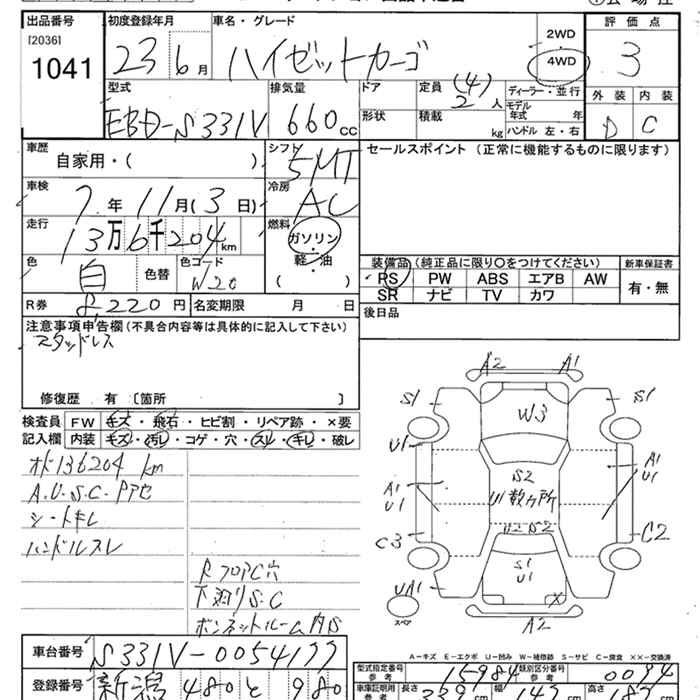 出品番号 初度登録年月 車名・グレード 評価点
[2036]
1041
23年 6月 ハイゼットカーゴ
2WD
4WD
3
型式 排気量 ドア 定員 (4) 2人 ディーラー・並行
外装 内装
EBD-S331V 660cc
形状 積載 kg
モデル年式 年
ハンドル 左・右
D C
車歴 シフト セールスポイント (正常に機能するものに限ります)
自家用・( ) 5MT
車検 冷房
7年 11月(3日) AC
走行 燃料
13万6千204km ガソリン・軽油
( )
色 色替 色コード
白 W20
装備品 (純正品に限り〇をつけてください) 新車保証書
PS PW ABS エアB AW
SR ナビ TV カワ
有・無
R券 8,220円 名変期限 月 日
後日品
注意事項申告欄 (不具合内容等は具体的に記入して下さい)
スタッドレス
修復歴 有 〔箇所 〕
検査員記入欄
FW キズ・飛石・ヒビ割・リペア跡・×要
内装 キズ・汚レ・コゲ・穴・スレ・キレ・破レ
オド136204km
A.U.S.C.
シートキレ
ハンドルスレ
R フロアC穴
下廻りS.C
ボンネットルーム内S
A2 A1
S1 S1
W3
U1
A1
U1
S2
U数ヵ所
A1
U1
U2 S2
C3 C2
S1
U1
UA1
X
スペア
A2
A-キズ E-エクボ U-凹み W-補修跡 S-サビ C-腐食 XX-交換済
車台番号 S331V-0054177
登録番号 新潟 480 と 980
型式指定番号 参考 15984 類別区分番号 参考 0094
車庫証明用 参考 長さ 339 幅 147 高さ 187